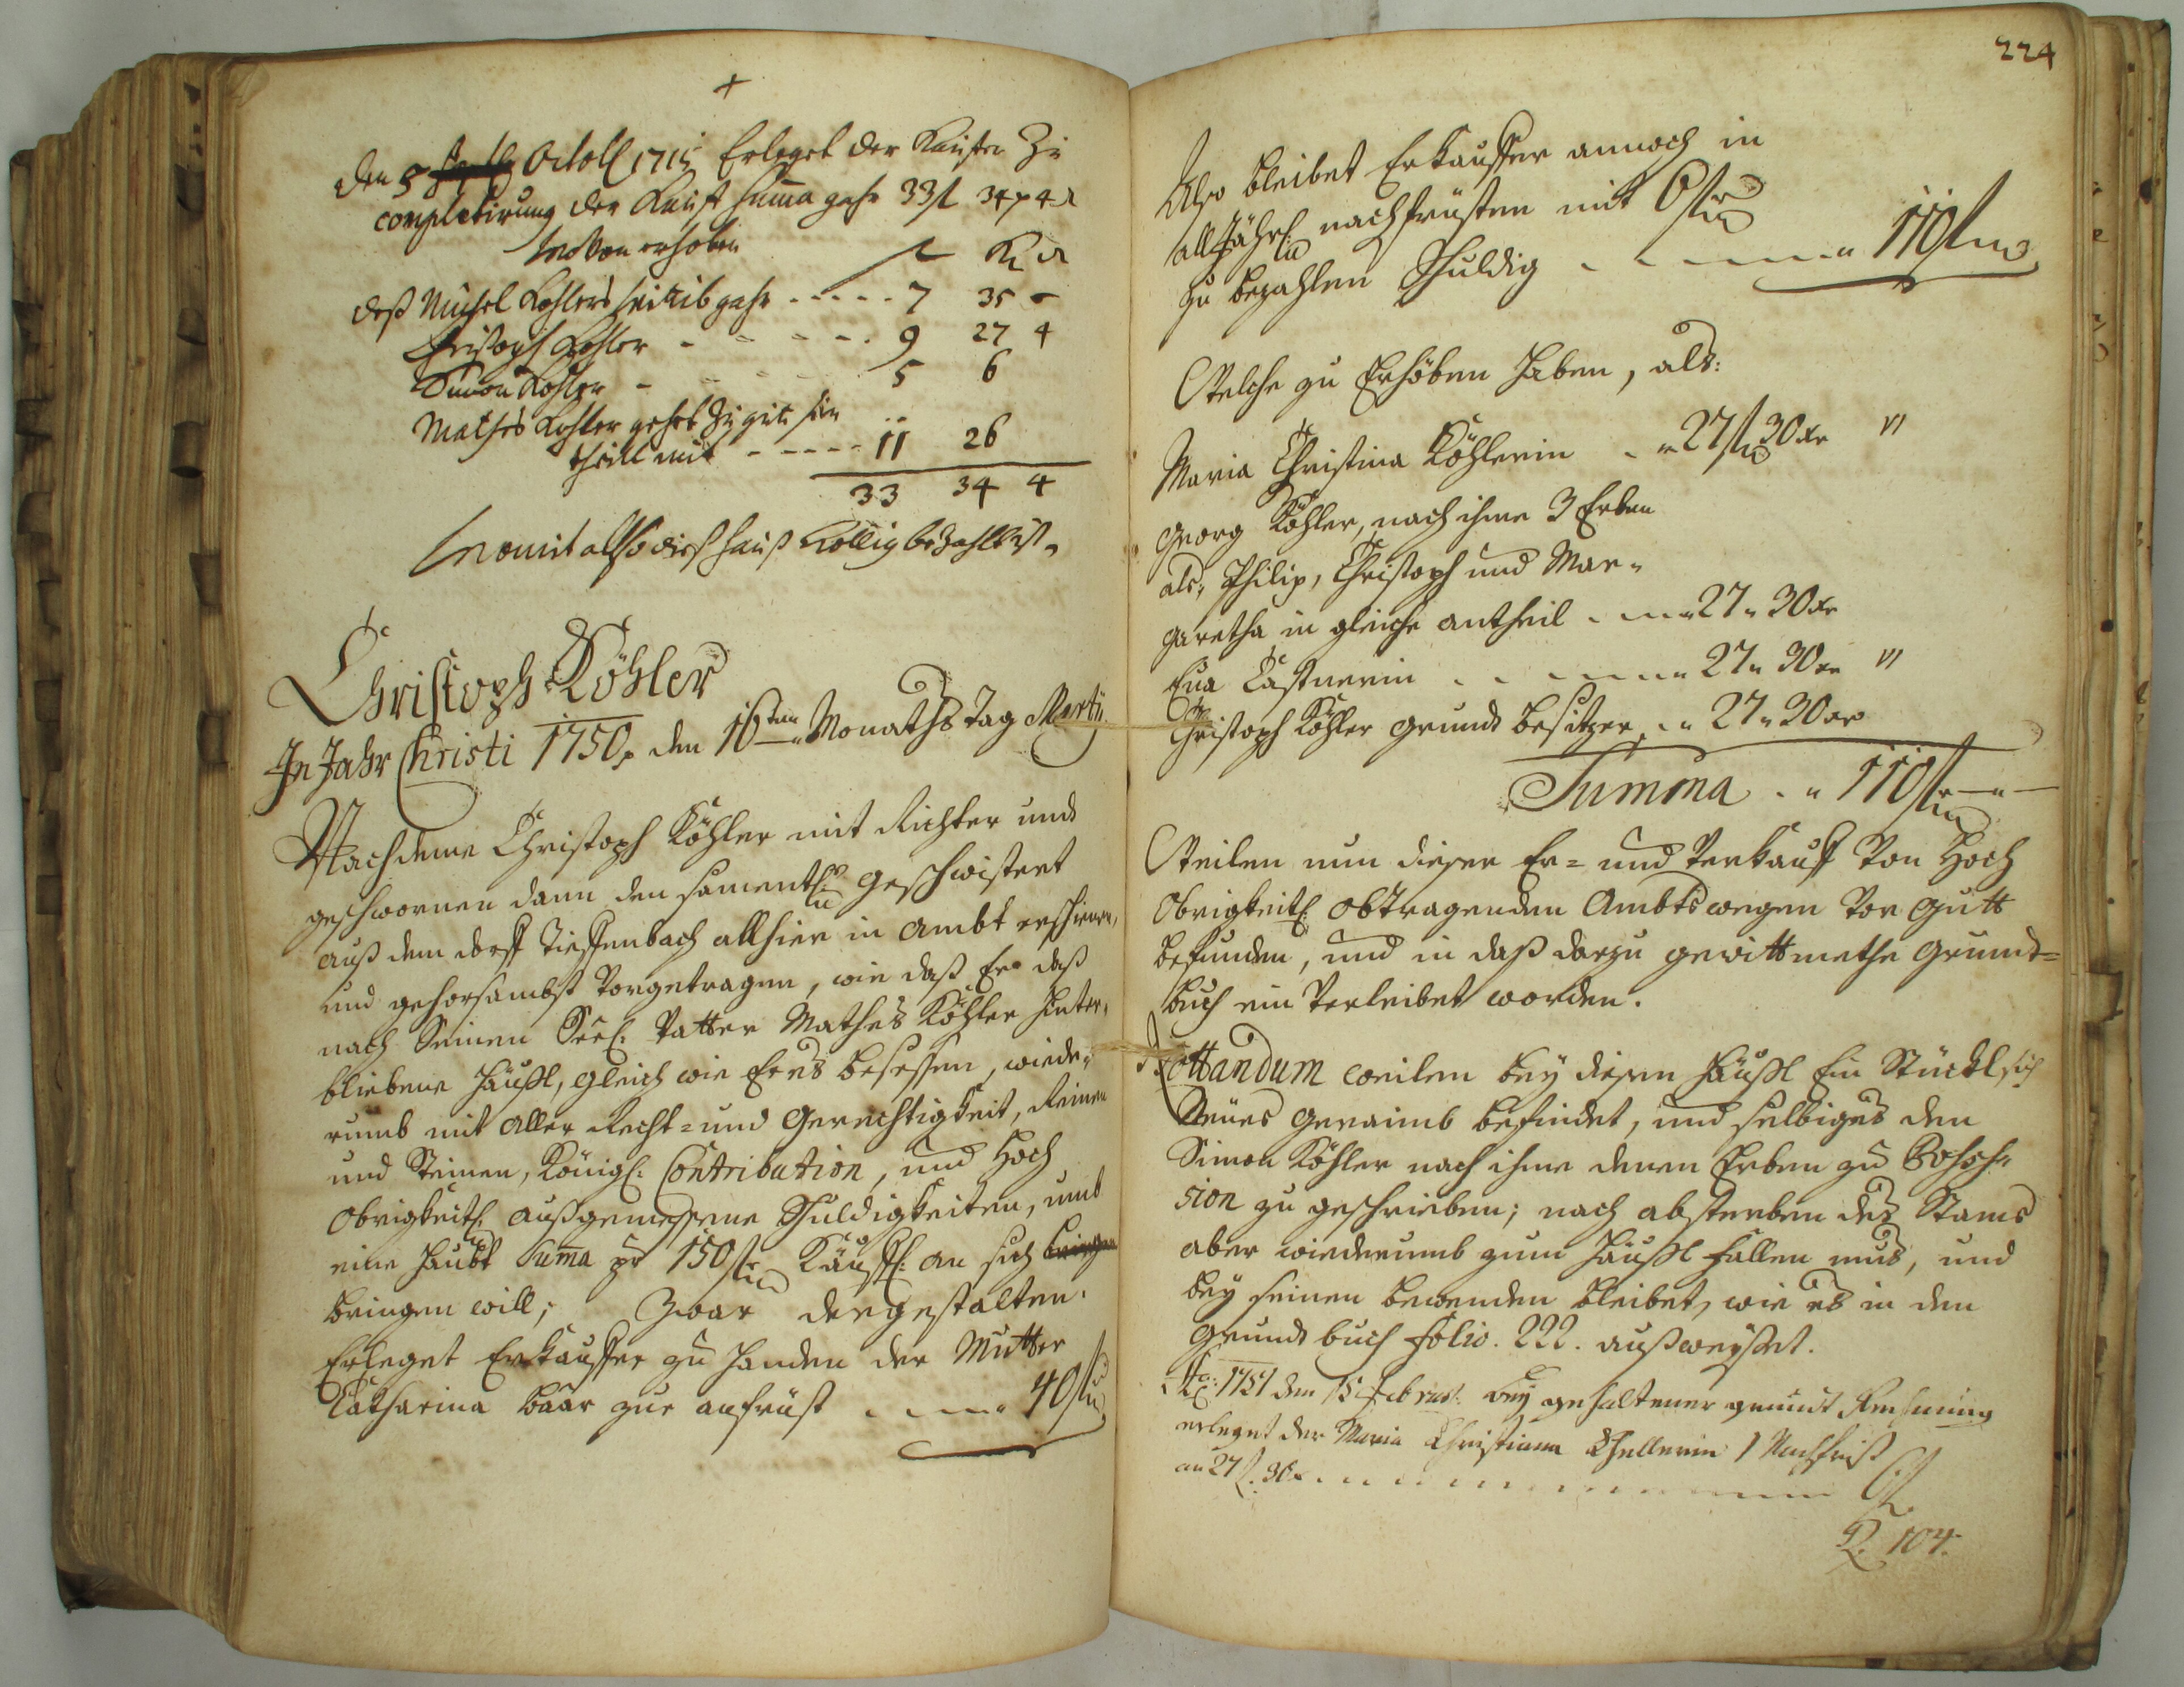 Den 5 Octob 1715 Erleget der Kaufer Zu
completirung der Kauf Suma gahr 33 fl 34 x 4 d
Wovon erhoben
fl Kr d
deß Michel Kohlers gahr - - - - - 7 35 -
Christoph Kohler - - - - - 9 27 4
Simon Kohler - - - 5 6
Mathes Kohler gehet zu gutt sein
theill mit - - - - - 11 26
33 34 4
Womit also dieß Hauß Völlig bezahlt ist.
Christoph Köhler
In Jahr Christi 1750, den 16ten Monaths Tag Martij.
Nachdeme Christoph Köhler mit Richter und
geschwornen dann den samentl: geschwistert
auß dem dorff Tieffenbach allhier in Ambt erschienen,
und gehorsambst Vorgetragen, wie daß Er daß
nach Seinen Seel: Vatter Mathes Köhler hinter,
bliebene Häußl, gleich wie Er es besessen, wiede-
rumb mit aller Recht- und Gerechtigkeit, Reinen
und Steinen, Königl: Contribution, und Hoch
Obrigkeitl: außgemessene Schuldigkeiten, umb
eine Haubt Suma pr 150 fl Käuffl: an sich
bringen will; Zwar dergestalten.
Erleget Erkauffer zu Handen der Mutter
Catharina baar zur anfrist - - - 40 fl
224
Also bleibet Erkauffer annoch in
all Jährl: nachfrüsten mit 6 fl
zu bezahlen Schuldig - - - - - 110 fl
Welche zu Erhöben haben, als:
Maria Christina Köhlerin - - 27 fl 30 xr
Georg Köhler, nach ihme 3 Erben
als, Philip, Christoph und Mar-
garetha in gleiche antheil - - - 27 " 30 xr
Eva Castnerin - - - - - 27 " 30 xr
Christoph Köhler grundt besitzer - " 27 " 30 xr
Summa - " 110 fl - " -
Weilen nun dieser Er- und Verkauff Von Hoch
Obrigkeitl: obtragenden Ambtswegen Vor gutt
befunden, und in daß darzu gewittmethe Grund-
buch ein Verleibet worden.
Nottandum weilen bey diesen Häußl Ein Stückl sich
Neues geraimb befindet, und selbiges den
Simon Köhler nach ihme denen Erben zu Posses-
sion zu geschrieben; nach absterben des Stams
aber wiederumb zum Häußl fallen mus, und
bey seinen bewenden bleibet, wie es in den
grundt buch folio. 222. außweyßet.
Ao: 1751 den 15 Februar: bey gehaltener grundt Rechnung
erleget der Maria Christiana Khellerin 1 Nachfrist
an 27 fl. 30 x. - - - - - 6 fl.
104.